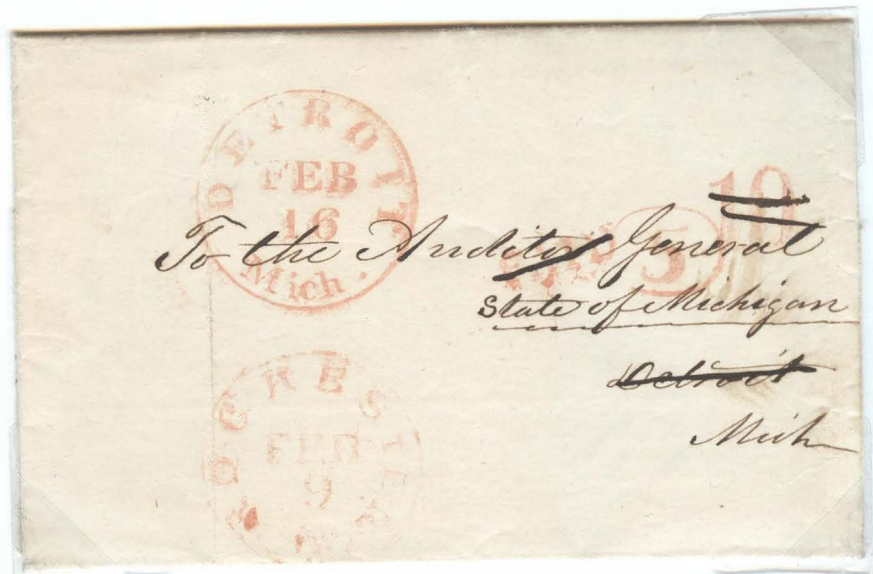 DETROIT
FEB
16
Mich.
10
5
To the Auditor General
State of Michigan
Detroit
Mich
ROCHESTER
FEB
9